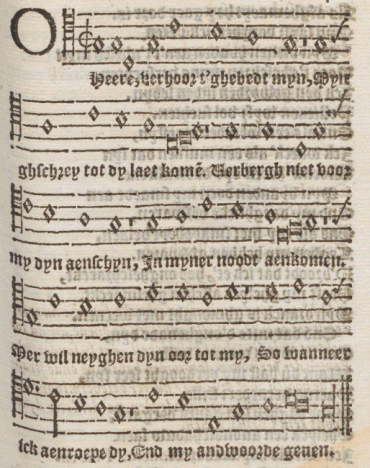 O Heere, verhoor t'ghebedt myn, Myn
ghschrey tot dy laet komē. Verbergh niet voor
my dyn aenschyn, In myner noodt aenkomen.
Mer wil neyghen dyn oor tot my, So wanneer
ick aenroepe dy, End my andwoorde geuen.